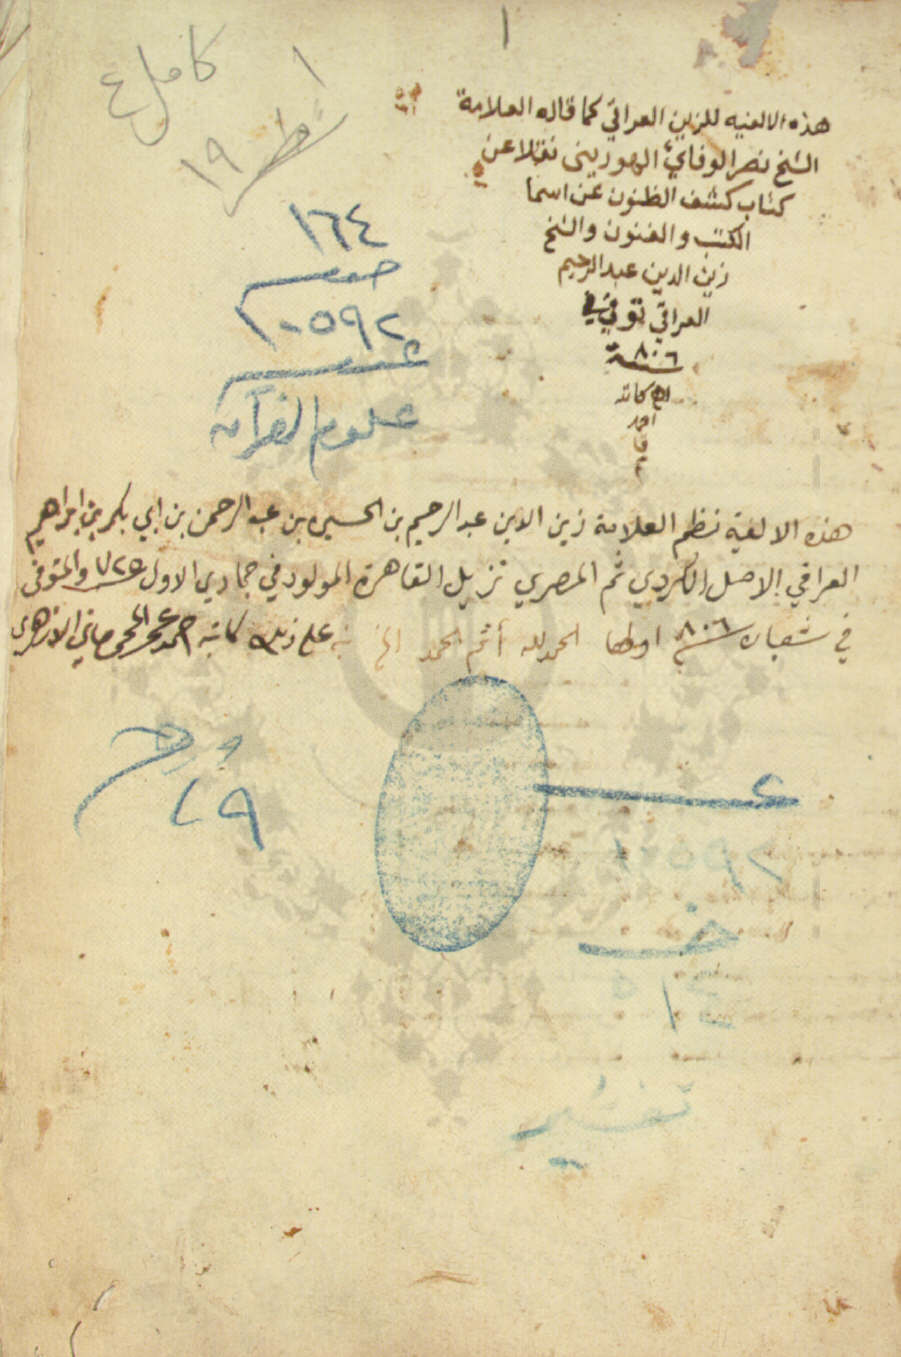 ١
كامل ٤
١
١٩
هذه الالفيه للزين العراقي كما قاله العلامة
الشيخ نصر الوفائي الهوريني نقلا عن
كتاب كشف الظنون عن اسما
الكتب والفنون والشيخ
زين الدين عبد الرحيم
العراقي توفي في
سنة ٨٠٦
اه كاتبه
احمد
١٦٤
١٠٥٩٢
علوم القرآن
هذه الالفية نظم العلامة زين الدين عبد الرحيم بن الحسين بن عبد الرحمن بن ابي بكر بن ابراهيم
العراقي الاصل الكردي ثم المصري نزيل القاهرة المولود في جمادي الاول ٧٢٥ والمتوفى
في شعبان ٨٠٦ اولها الحمد لله أتم الحمد الخ نبه على ذلك كاتبه احمد عمر المحمصاني الازهري
٨٩
١٠٥٩٢
٥١٤
تفسير